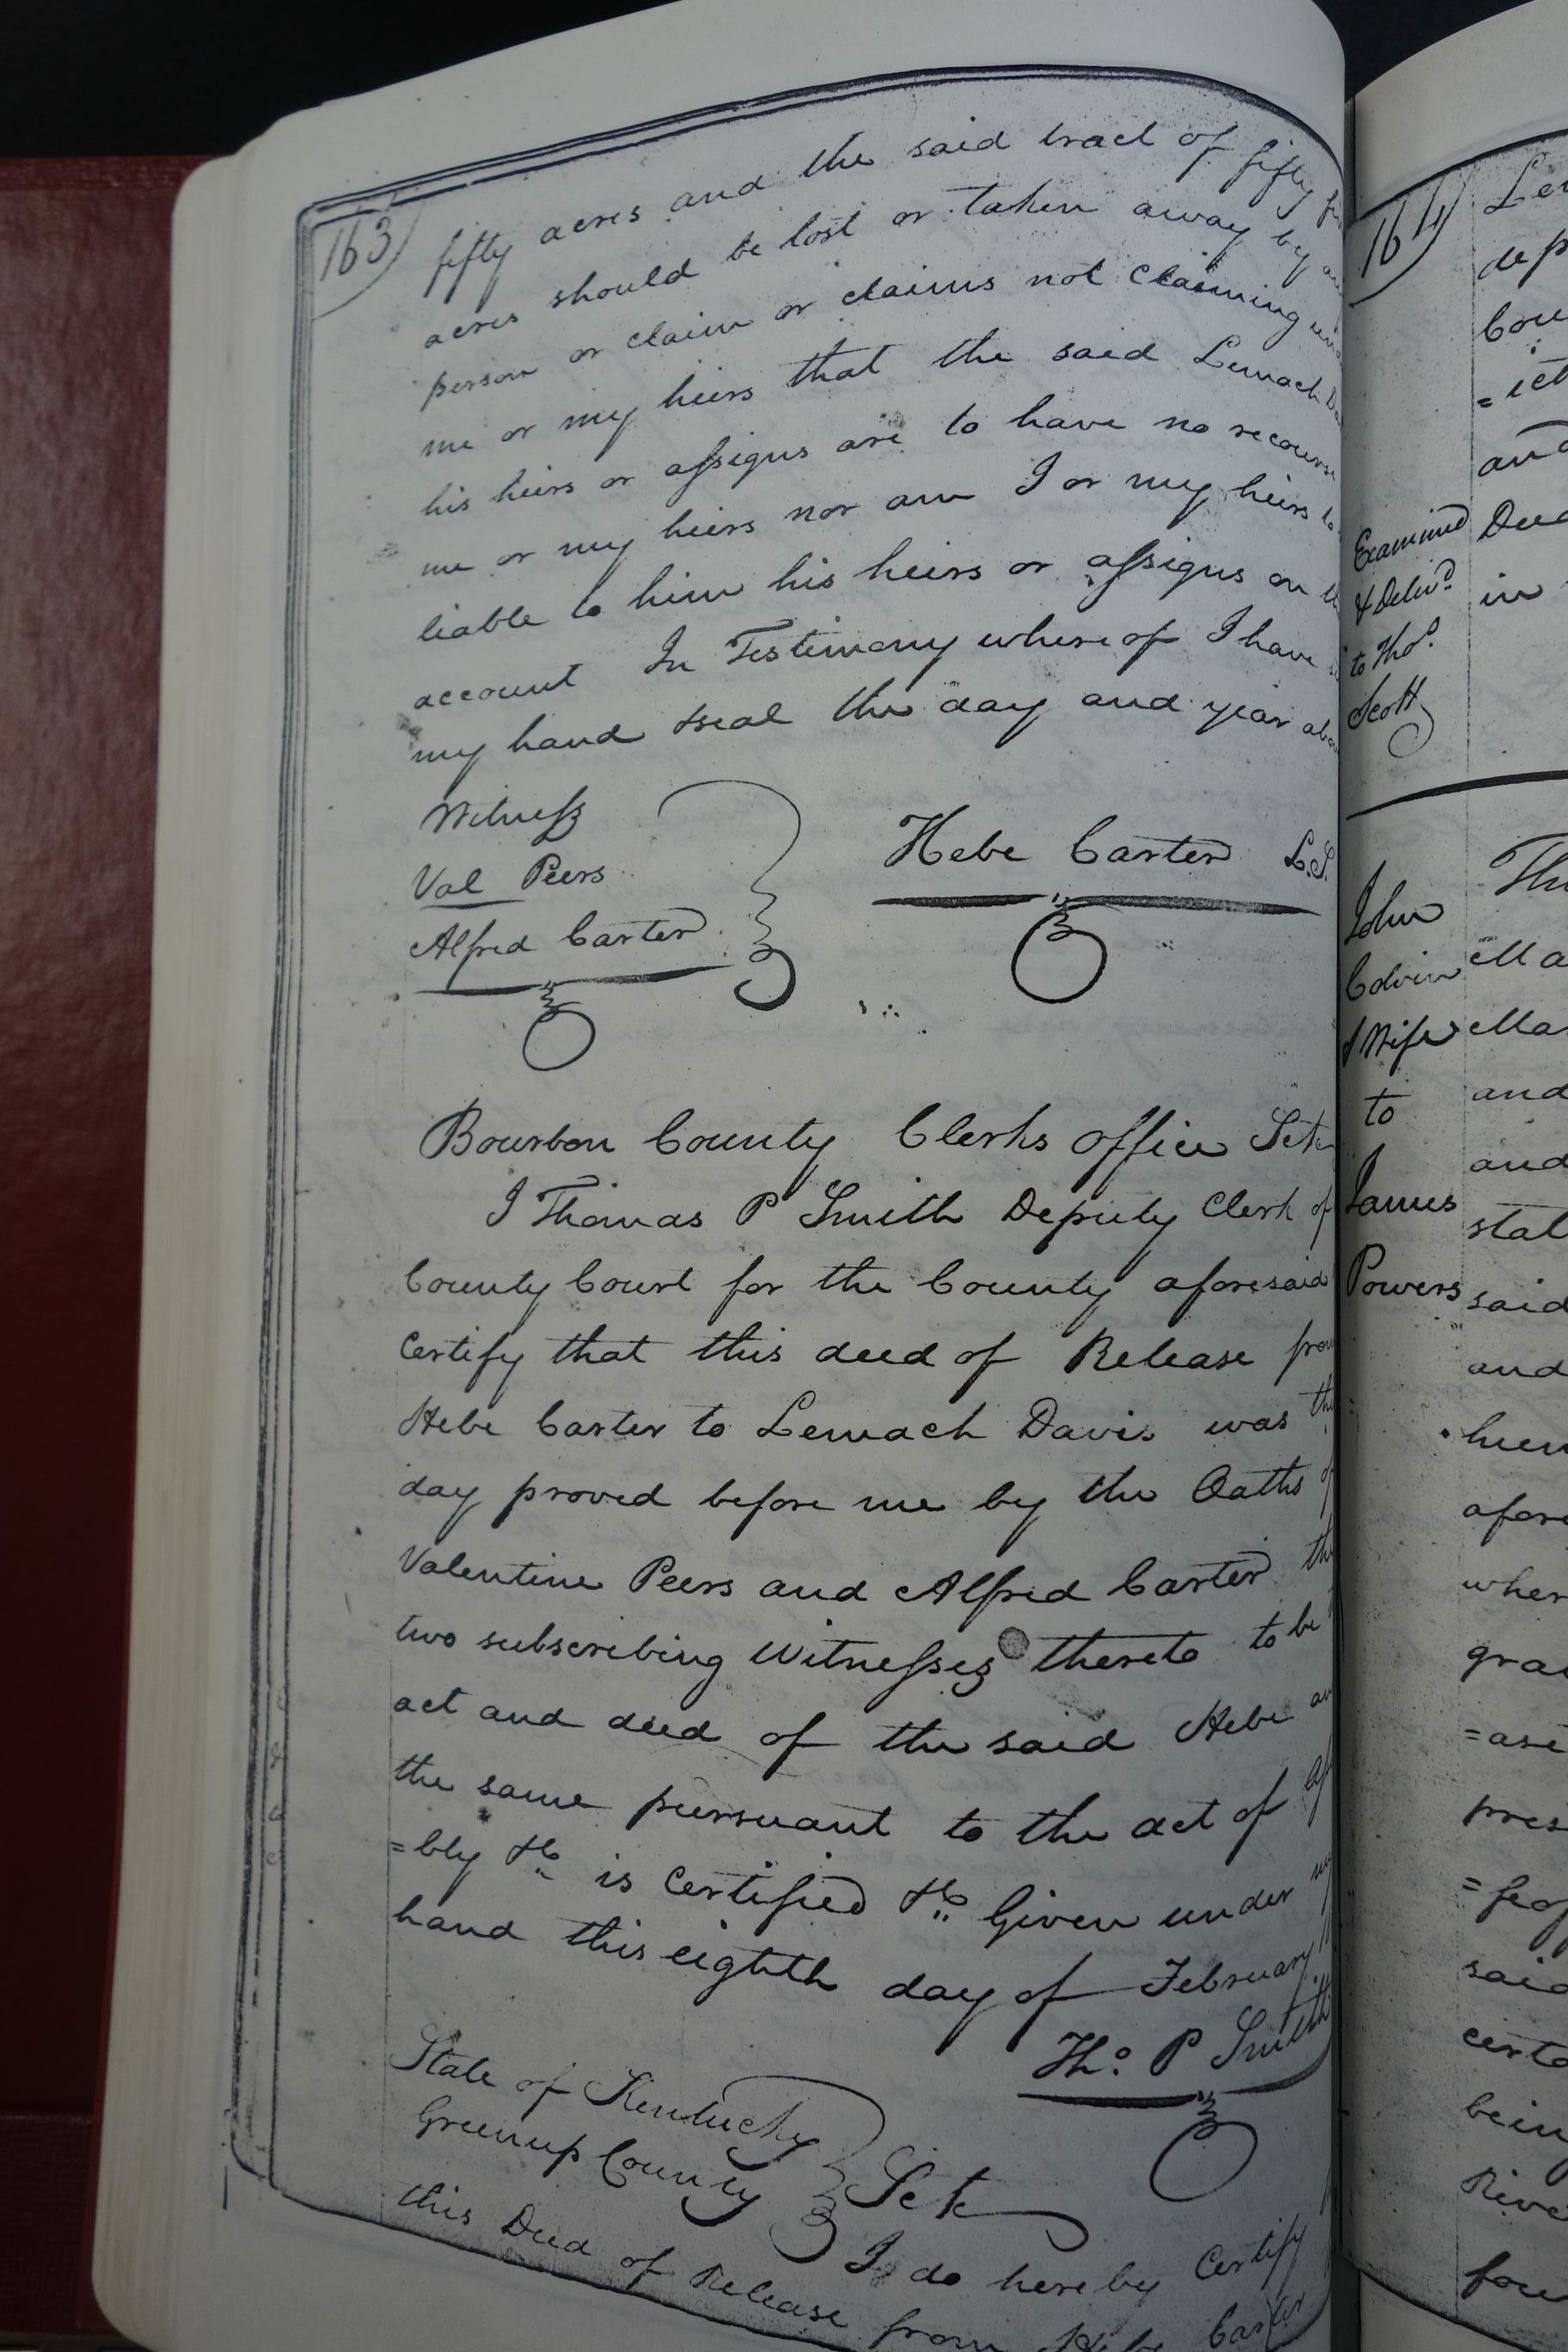 163
fifty acres and the said tract of fifty
acres should be lost or taken away by
person or claim or claims not claiming
me or my heirs that the said Lemach
his heirs or assigns are to have no recourse
me or my heirs nor am I or my heirs to
liable to him his heirs or assigns on
account In Testimony whereof I have
my hand & seal the day and year
Witness
Val Peers
Alfred Carter
Hebe Carter L.S.
Bourbon County Clerks office Sct
I Thomas P Smith Deputy Clerk of
County Court for the County aforesaid
Certify that this deed of Release from
Hebe Carter to Lemach Davis was
day proved before me by the Oaths of
Valentine Peers and Alfred Carter the
two subscribing Witnesses thereto to be
act and deed of the said Hebe
the same pursuant to the act of
=bly &c is Certified &c Given under
hand this eighth day of February
Tho. P Smith
State of Kentucky
Greenup County Sct
I do hereby Certify
this Deed of Release from Hebe Carter
164
Examined
& Delivd.
to Thos.
Scott
John
Colvin
& Wife
to
James
Powers
and
Deed
in
Ma
and
and
stat
said
and
afore
wher
gra
=ase
pres
said
certa
bein
River
four